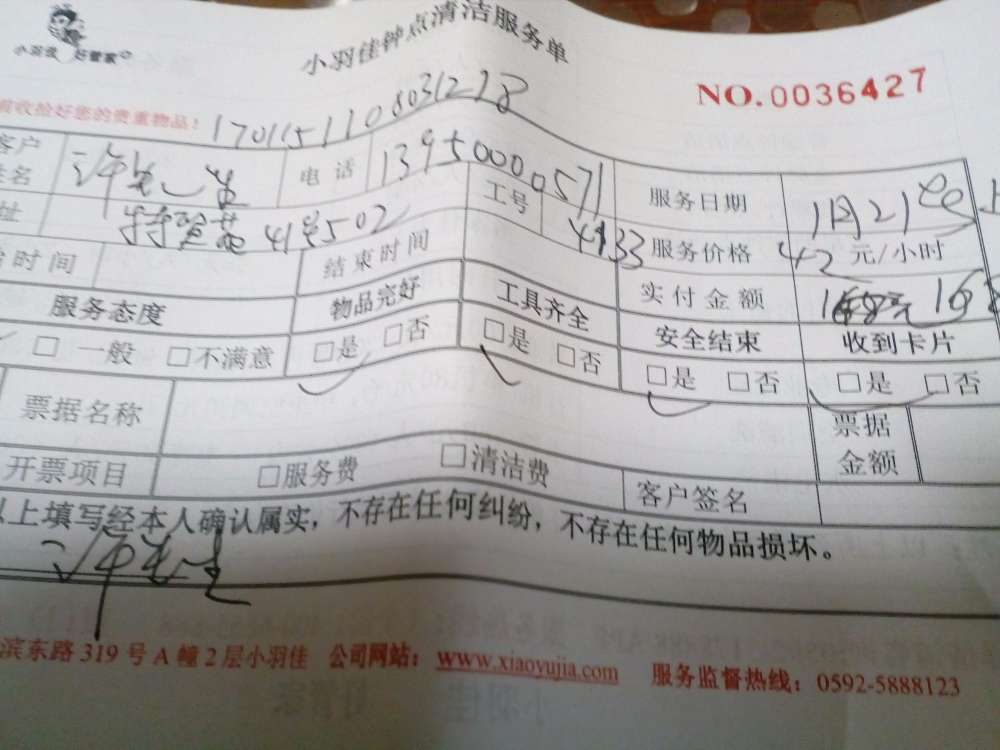 小羽佳 好管家
小羽佳钟点清洁服务单
NO.0036427
前收拾好您的贵重物品!
客户姓名 许先生 电话 13950000571 服务日期 1月21
址 41号502 工号 4933 服务价格 42 元/小时
时间 结束时间 实付金额
服务态度 物品完好 工具齐全 安全结束 收到卡片
□一般 □不满意 □是 □否 □是 □否 □是 □否 □是 □否
票据名称 票据金额
开票项目 □服务费 □清洁费 客户签名
以上填写经本人确认属实,不存在任何纠纷,不存在任何物品损坏。
许先生
滨东路 319 号 A 幢 2 层小羽佳 公司网站: www.xiaoyujia.com 服务监督热线: 0592-5888123